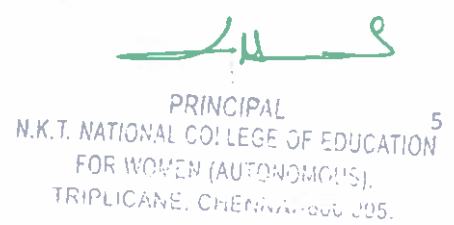 PRINCIPAL
5
N.K.T. NATIONAL COLLEGE OF EDUCATION
FOR WOMEN (AUTONOMOUS),
TRIPLICANE, CHENNAI-600 005.